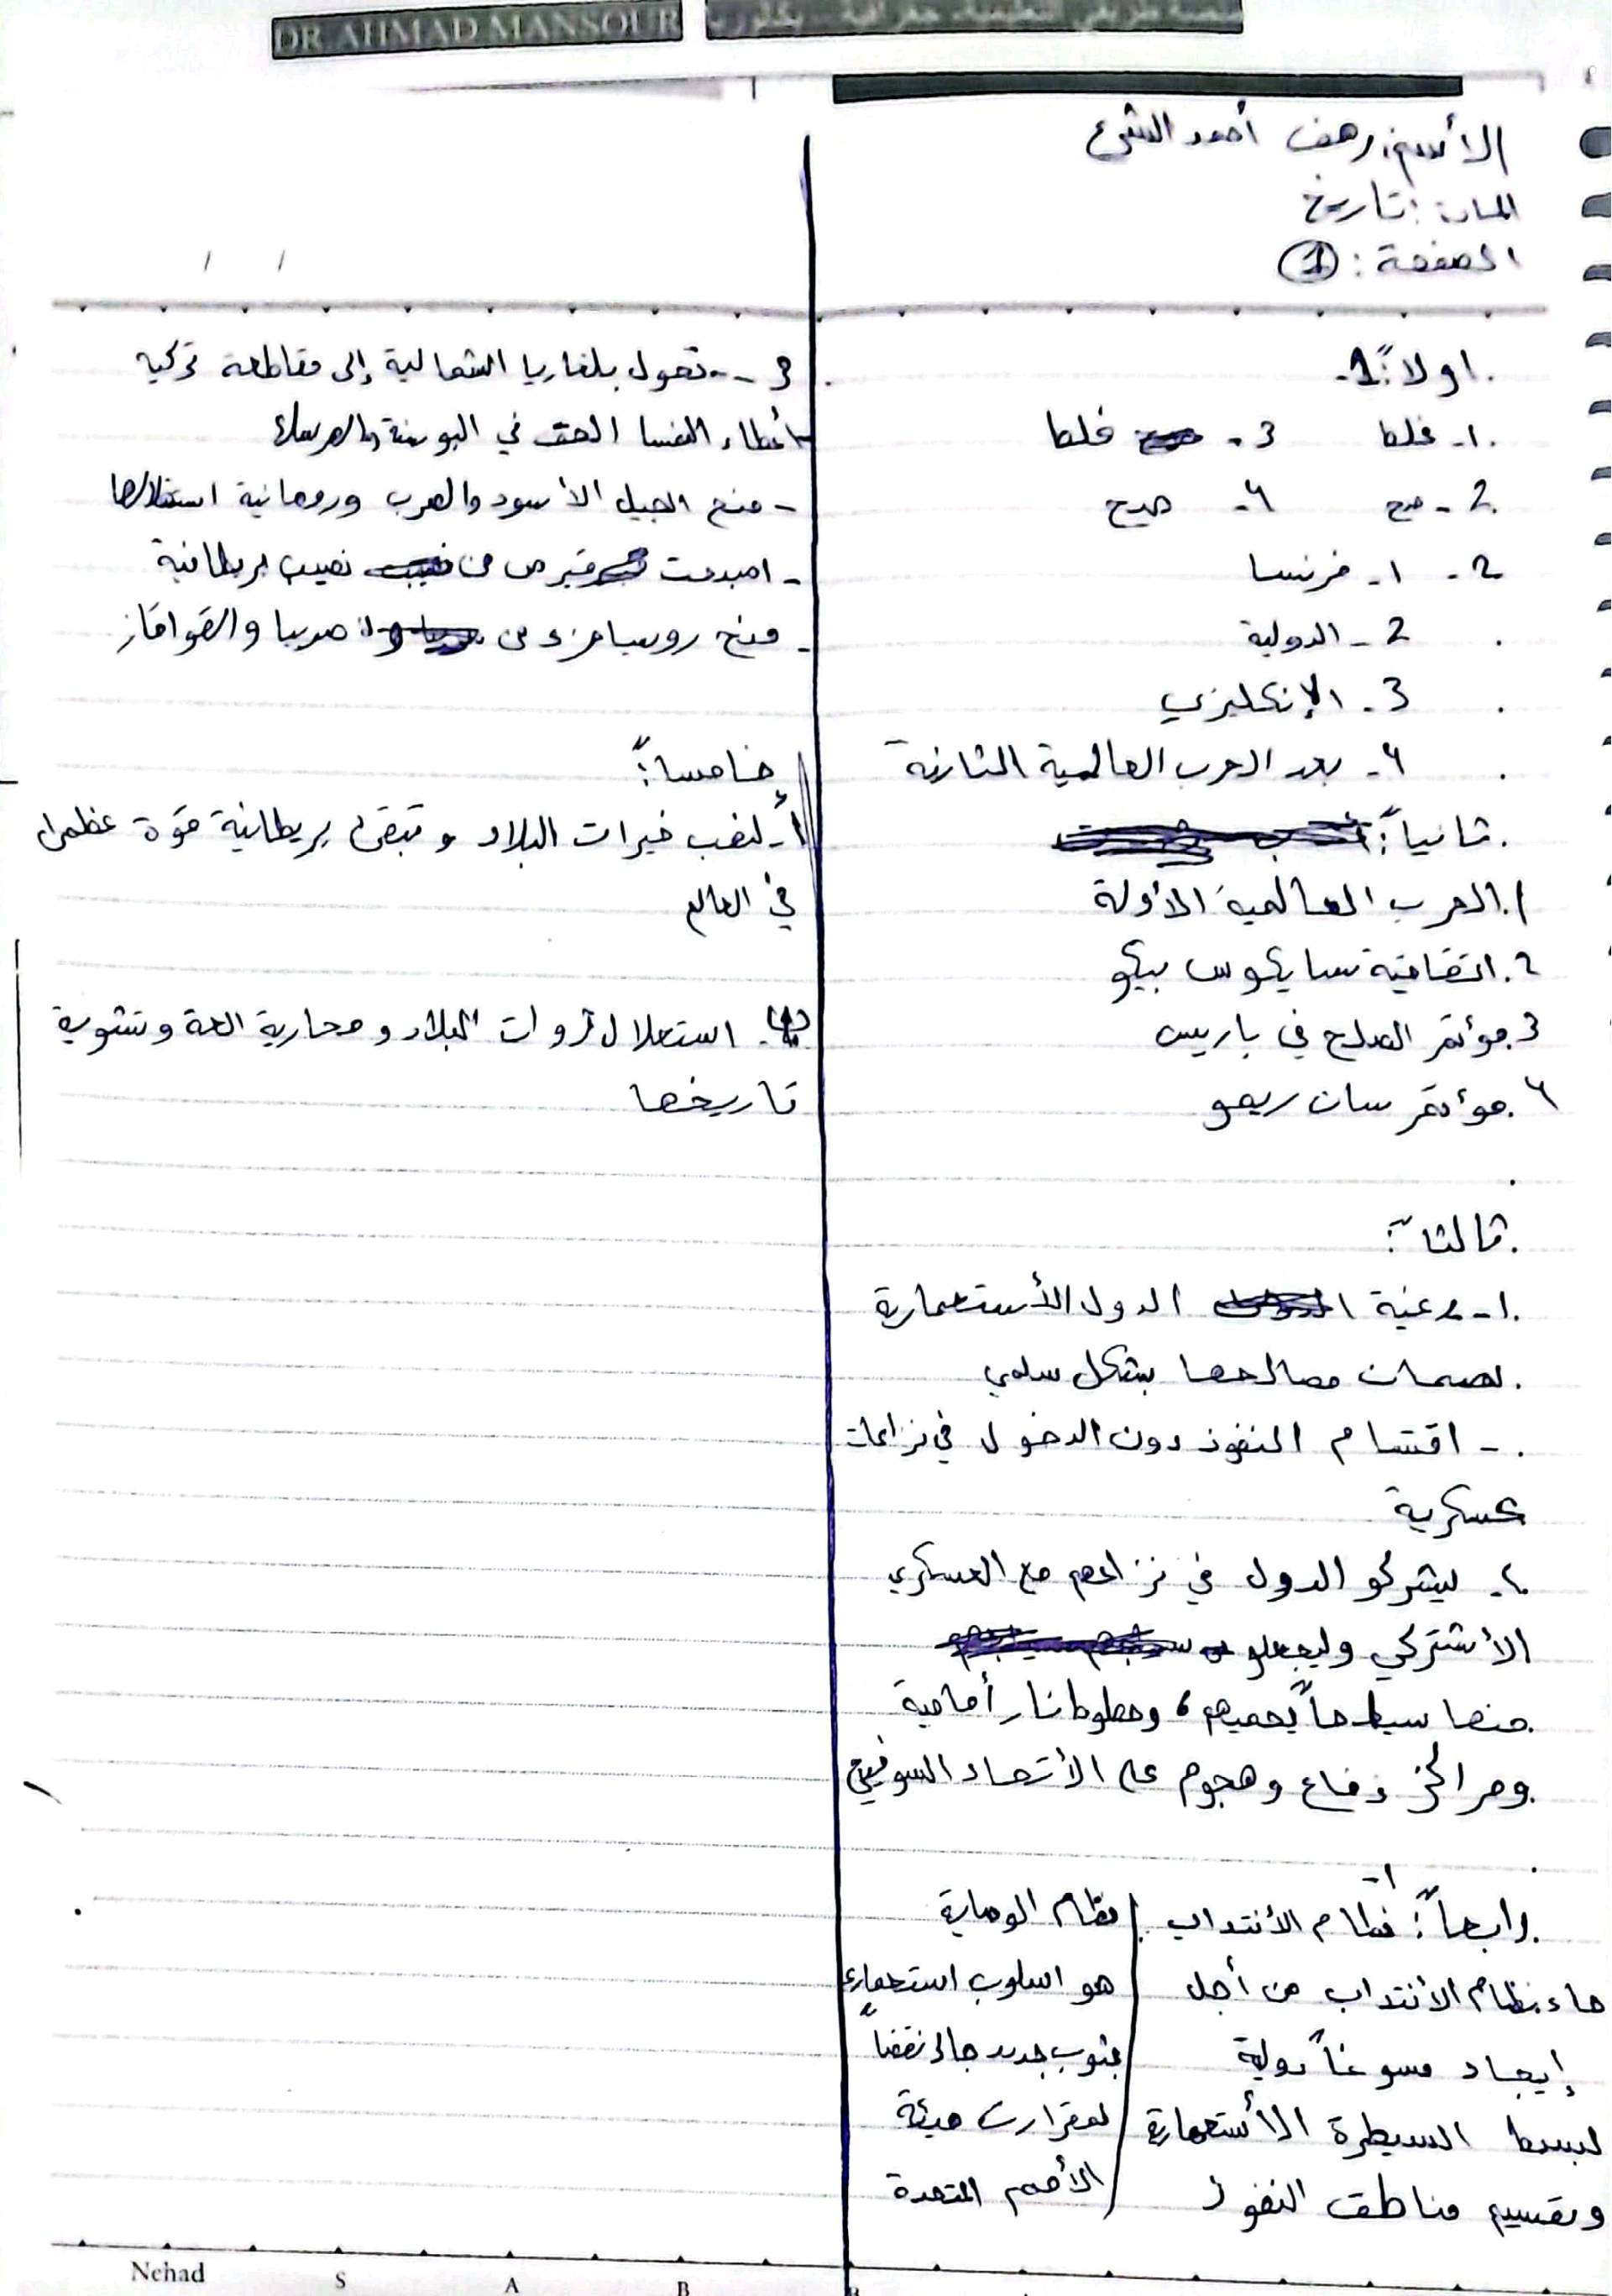 DR AHMAD MANSOUR
الأسم: رهف أحمد الشرع
المادة: تاريخ
الصفحة: 1
اولاً: 1-
1- غلط 3- غلط
2- صح 4- صح
2- 1- فرنسا
2- الدولية
3- الإنكليزي
4- بعد الحرب العالمية الثانية
ثانياً:
1. الحرب العالمية الأولة
2. اتفاقية سايكوس بيكو
3. مؤتمر الصلح في باريس
4. مؤتمر سان ريمو
ثالثاً:
1- رغبة الدول الأستعمارية
لضمان مصالحها بشكل سلمي
- اقتسام النفوذ دون الدخول في نزاعات
عسكرية
2- ليشركو الدول في نزاعهم مع العسكري
الأشتركي وليجعلو
منها سياجاً يحميهم، وخطوط نار أمامية
ومراكز دفاع وهجوم على الأتحاد السوفيتي
1-
رابعاً: نظام الأنتداب | نظام الوصاية
جاء نظام الأنتداب من أجل | هو اسلوب استعماري
إيجاد مسوغاً دولية | بثوب جديد جاء نقضاً
لبسط السيطرة الأستعمارية | لمقرارت هيئة
وتقسيم مناطق النفوذ | الأمم المتحدة
3 -- تحول بلغاريا الشمالية إلى مقاطعة تركيه
- أعطاء النمسا الحق في البوسنة والهرسك
- منح الجبل الأسود والصرب ورومانية استقلالها
- اصبحت قبرص من نصيب بريطانية
- منح روسيا جزء من صربيا والقوافاز
خامساً:
أ- لنهب خيرات البلاد وتبقى بريطانية قوة عظمى
في العالم
ب- استغلال ثروات البلاد ومحاربة اللغة وتشويه
تاريخها
Nehad S A B B